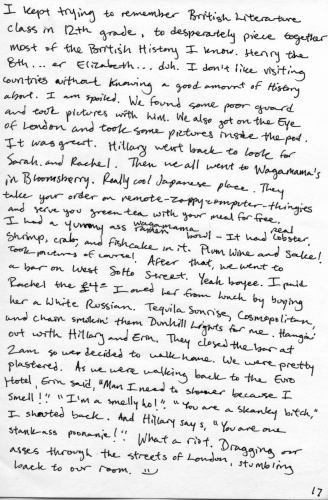 I kept trying to remember British Literature
class in 12th grade, to desperately piece together
most of the British History I know. Henry the
8th... er Elizabeth... duh. I don't like visiting
countries without knowing a good amount of History
about. I am spoiled. We found some poor guard
and took pictures with him. We also got on the Eye
of London and took some pictures inside the pod.
It was great. Hillary went back to look for
Sarah and Rachel. Then we all went to Wagamama's
in Bloomsberry. Really cool Japanese place. They
take your order on remote-zappy-computer-thingies
and serve you green tea with your meal for free.
I had a yummy ass wagamama ramen bowl - It had real lobster,
Shrimp, crab, and fishcake in it. Plum Wine and Sake!
Took pictures of course!. After that, we went to
a bar on West Soho Street. Yeah boyee. I paid
Rachel the £4= I owed her from lunch by buying
her a White Russian. Tequila Sunrise, Cosmopolitan,
and chain smokin' them Dunhill Lights for me. Hangin'
out with Hillary and Erin. They closed the bar at
2am so we decided to walk home. We were pretty
plastered. As we were walking back to the Euro
Hotel, Erin said, "Man I need to shower because I
smell!" "I'm a smelly ho!" "You are a skanky bitch,"
I shouted back. And Hillary says, "You are one
stank-ass poonanie!" What a riot. Dragging our
asses through the streets of London, stumbling
back to our room.
17